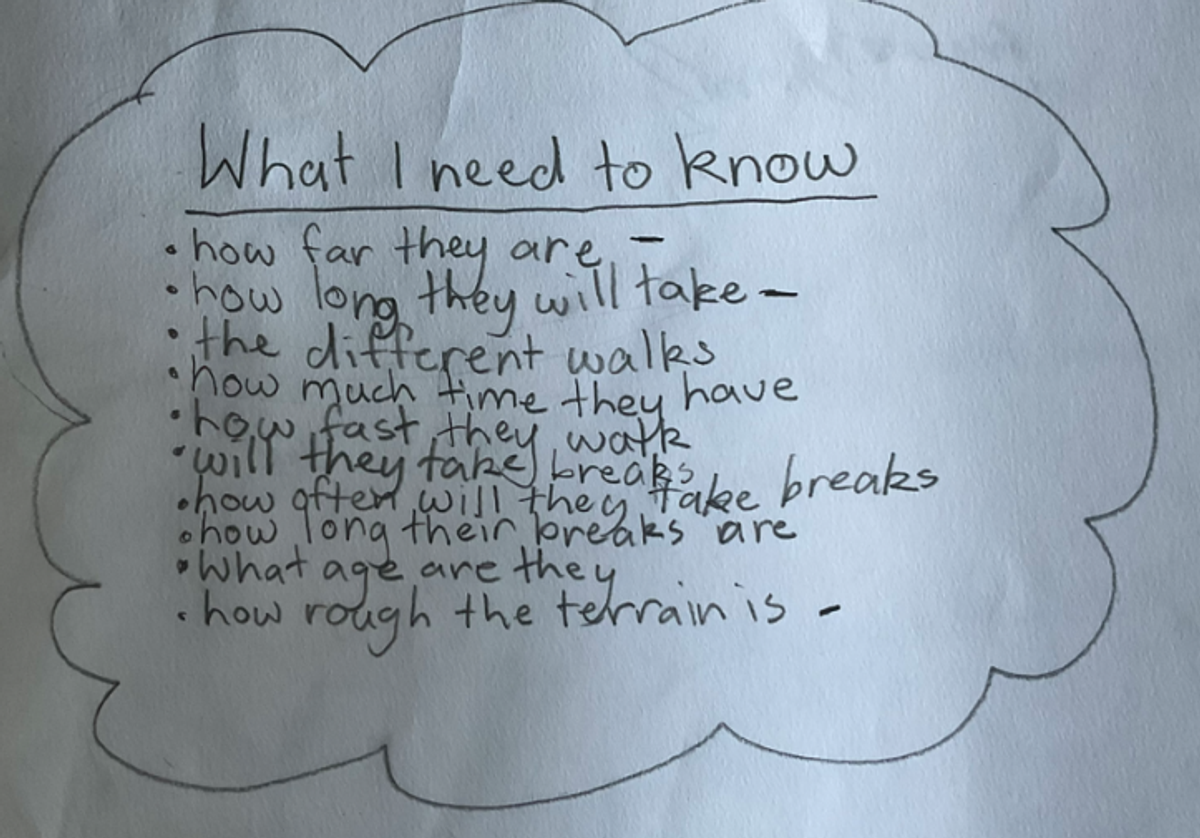 What I need to know
• how far they are –
• how long they will take –
• the different walks
• how much time they have
• how fast they walk
• will they take breaks
• how often will they take breaks
• how long their breaks are
• What age are they
• how rough the terrain is –